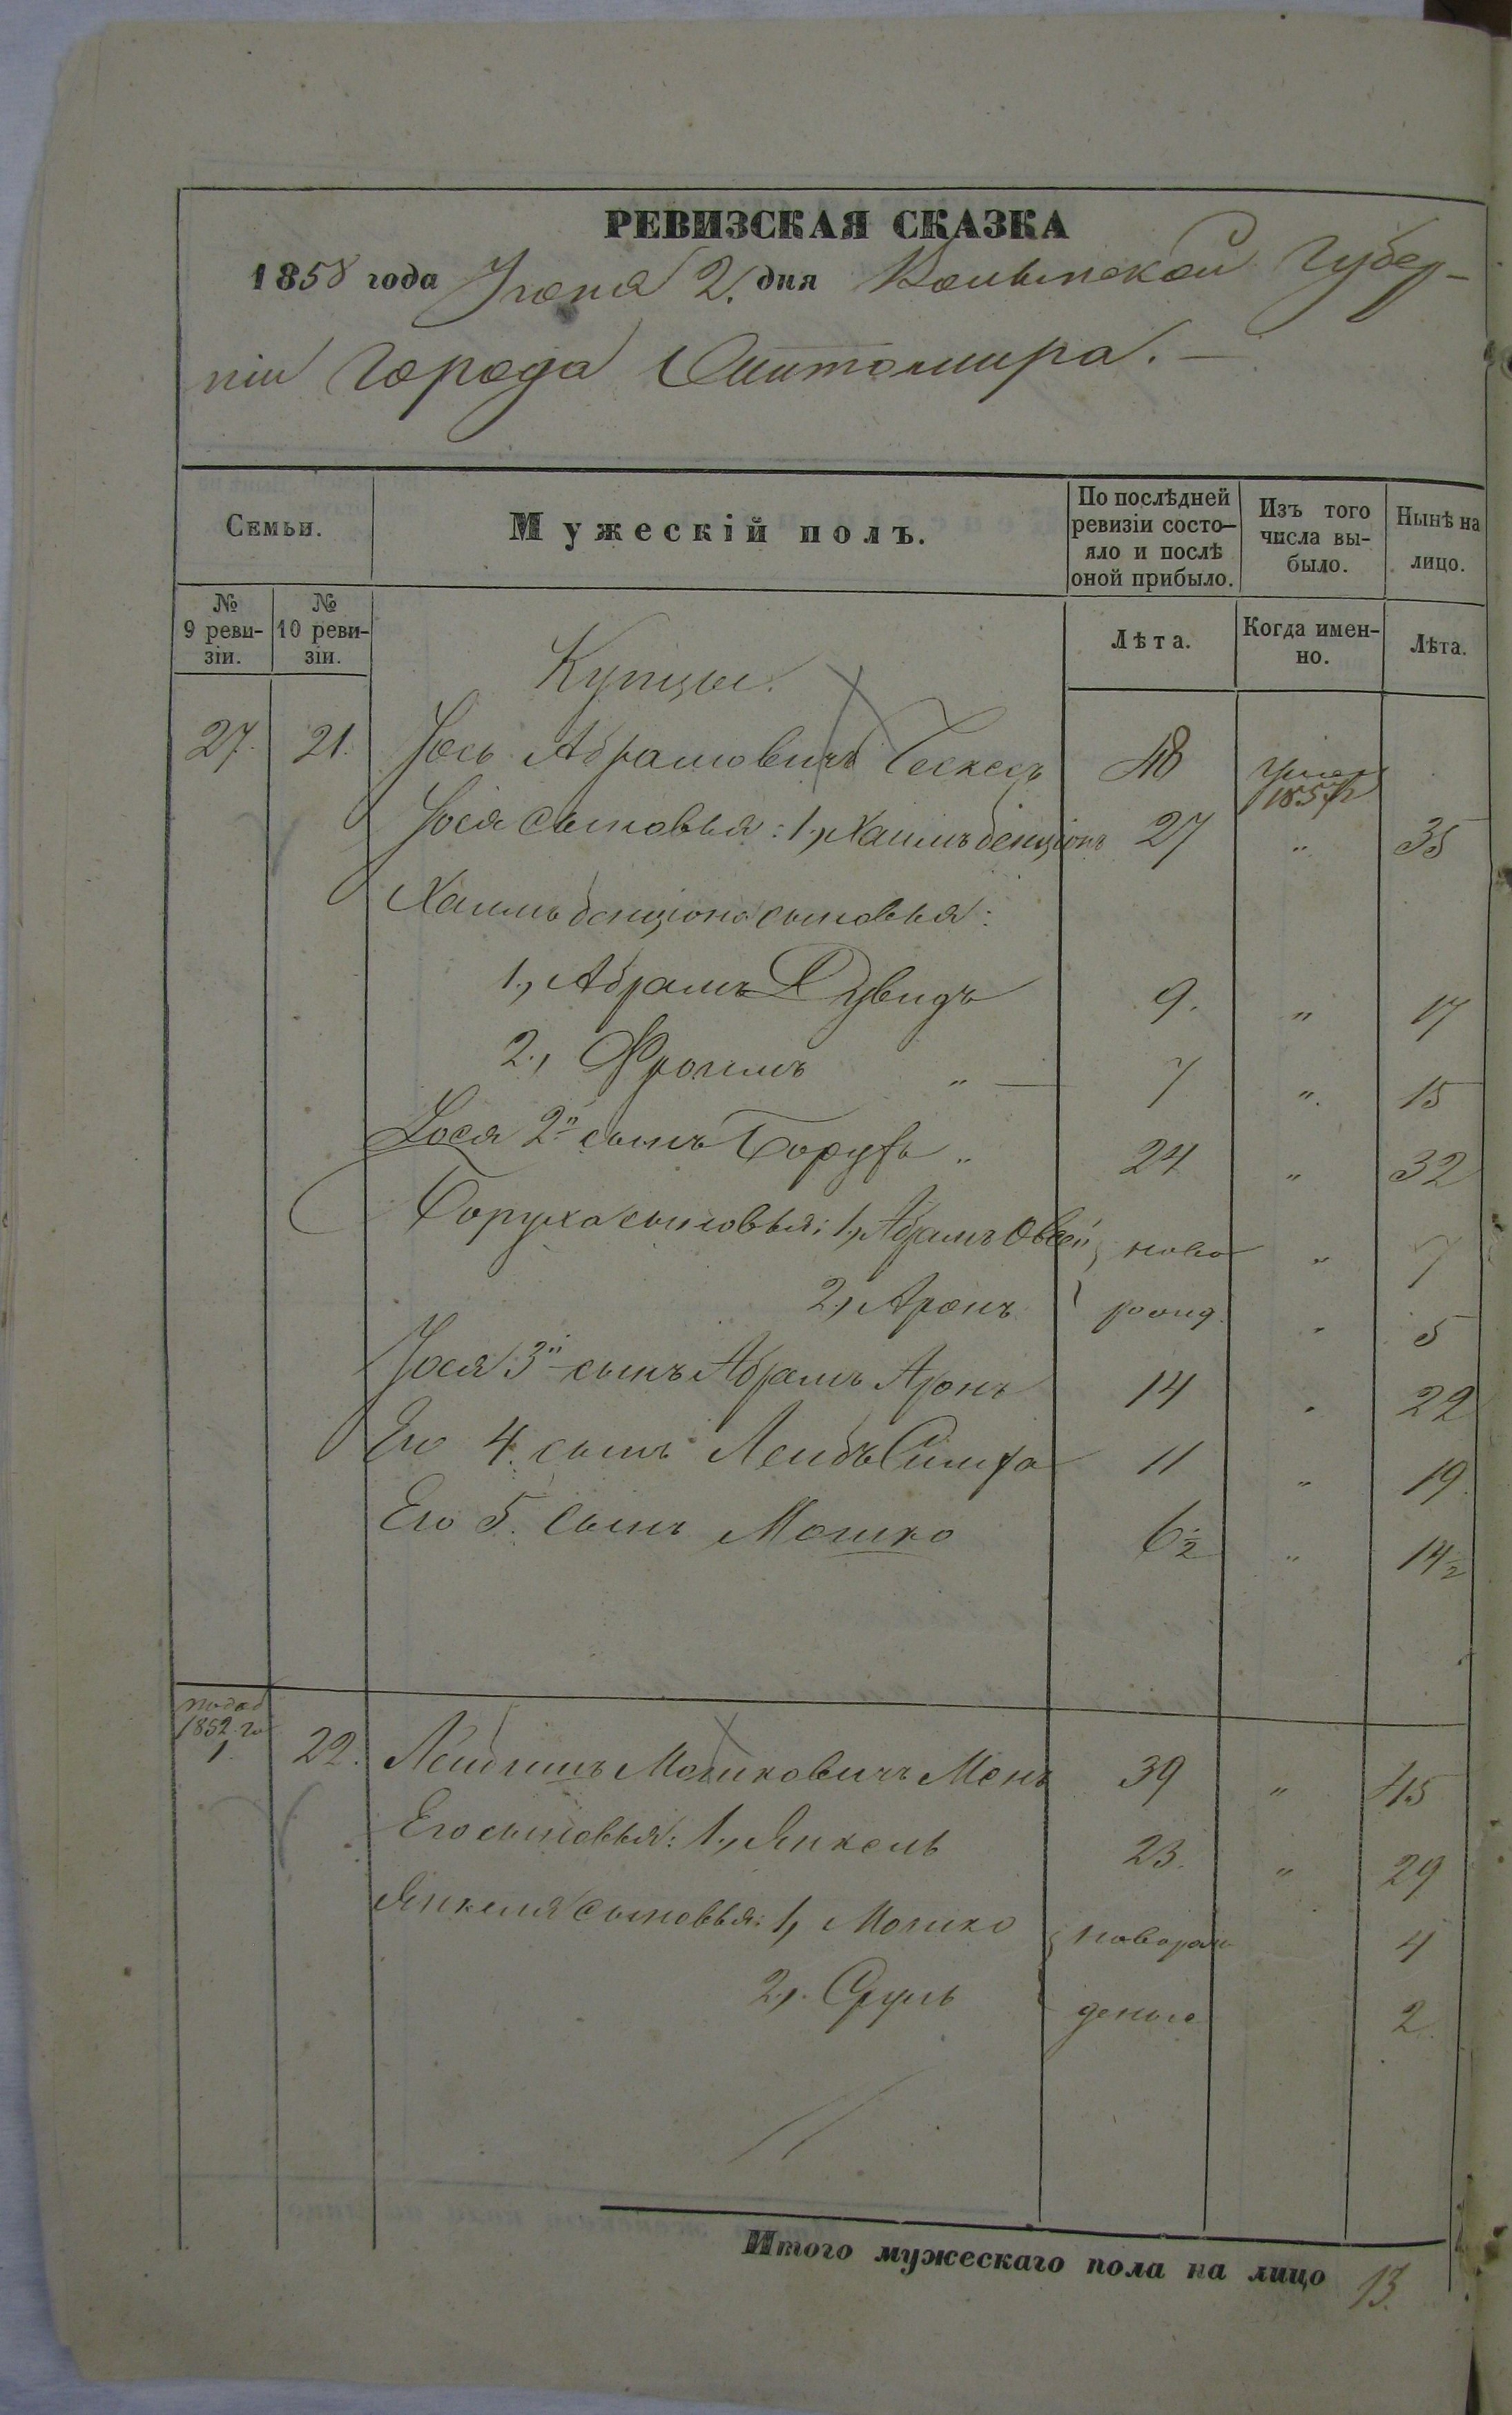 РЕВИЗСКАЯ СКАЗКА
1858 года Іюня 2. дня Волынской Губер-
ніи Города Житомира. —
Семьи.
Мужескій полъ.
По послѣдней ревизіи состо-яло и послѣ оной прибыло.
Изъ того числа вы-было.
Нынѣ на лицо.
№ 9 реви-зіи.
№ 10 реви-зіи.
Лѣта.
Когда имен-но.
Лѣта.
Купцы.
27. 21. Іось Абрамовичъ 48 умеръ 1857 г
Іося сыновья: 1, Хаимъ бенціонъ 27 " 35
Хаимъ бенціона сыновья:
1, Абрамъ Дувидъ 9. " 17
2, Фроимъ " — 7 " 15
Іося 2й сынъ Борухъ " 24 " 32
Боруха сыновья: 1, Абрамъ Овсей } ново " 7
2, Аронъ } рожд. " 5
Іося 3й сынъ Абрамъ Аронъ 14 " 22
Его 4. сынъ Лейбъ Симха 11 " 19
Его 5. сынъ Мошко 6½ " 14½
1852 го 1. 22. Лейбишъ Мошковичъ Менъ 39 " 45
Его сыновья: 1, Янкель 23. " 29
Янкеля сыновья: 1, Мошко } новорож 4
2, Сруль } деные 2
Итого мужескаго пола на лицо 13.